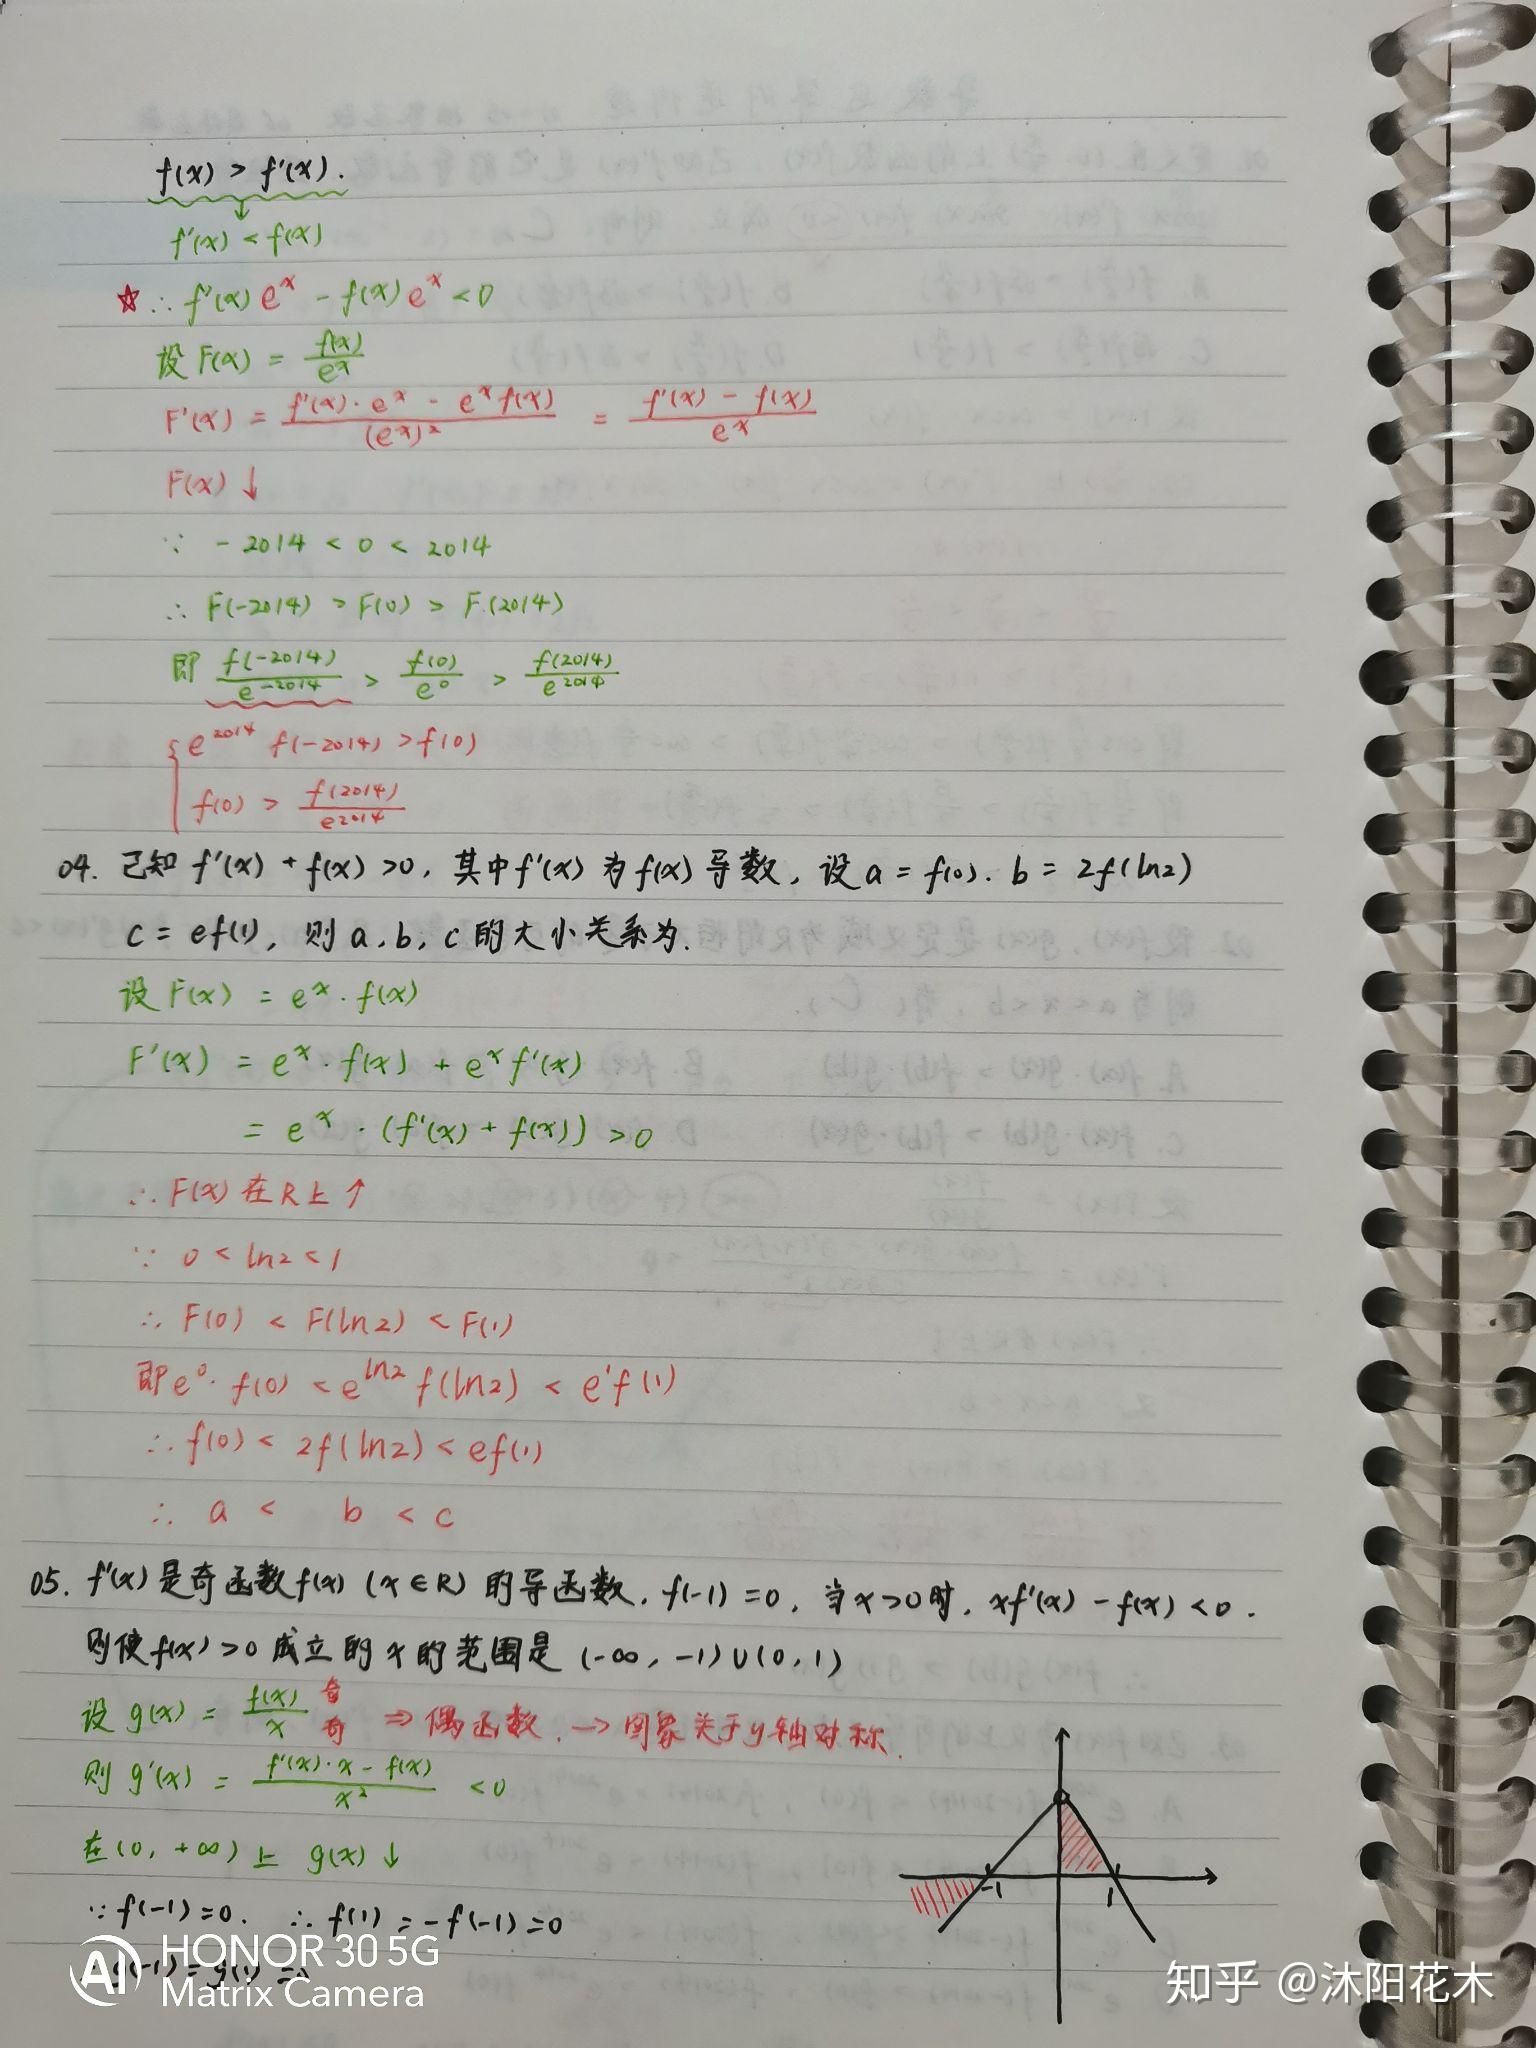 f(x) > f'(x).
f'(x) < f(x)
☆ ∴ f'(x)e^x - f(x)e^x < 0
设 F(x) = f(x)/e^x
F'(x) = (f'(x)·e^x - e^x f(x))/(e^x)² = (f'(x) - f(x))/e^x
F(x) ↓
∵ -2014 < 0 < 2014
∴ F(-2014) > F(0) > F(2014)
即 f(-2014)/e^-2014 > f(0)/e^0 > f(2014)/e^2014
{ e^2014 f(-2014) > f(0)
f(0) > f(2014)/e^2014
04. 已知 f'(x) + f(x) >0, 其中f'(x) 为 f(x) 导数, 设 a = f(0). b = 2f(ln2)
c = ef(1), 则 a, b, c 的大小关系为.
设 F(x) = e^x · f(x)
F'(x) = e^x · f(x) + e^x f'(x)
= e^x · (f'(x) + f(x)) > 0
∴ F(x) 在 R 上 ↑
∵ 0 < ln2 < 1
∴ F(0) < F(ln2) < F(1)
即 e^0 · f(0) < e^ln2 f(ln2) < e^1 f(1)
∴ f(0) < 2f(ln2) < ef(1)
∴ a < b < c
05. f'(x) 是奇函数 f(x) (x∈R) 的导函数, f(-1) = 0, 当 x>0 时, xf'(x) - f(x) < 0.
则使 f(x) >0 成立的 x 的范围是 (-∞, -1)∪(0, 1)
设 g(x) = f(x)/x 奇/奇 ⇒ 偶函数. → 图象关于y轴对称.
则 g'(x) = (f'(x)·x - f(x))/x² < 0
在 (0, +∞) 上 g(x) ↓
-1 1
∵ f(-1) = 0. ∴ f(1) = -f(-1) = 0
g(-1) = g(1) = 0
AI HONOR 30 5G
Matrix Camera
知乎 @沐阳花木